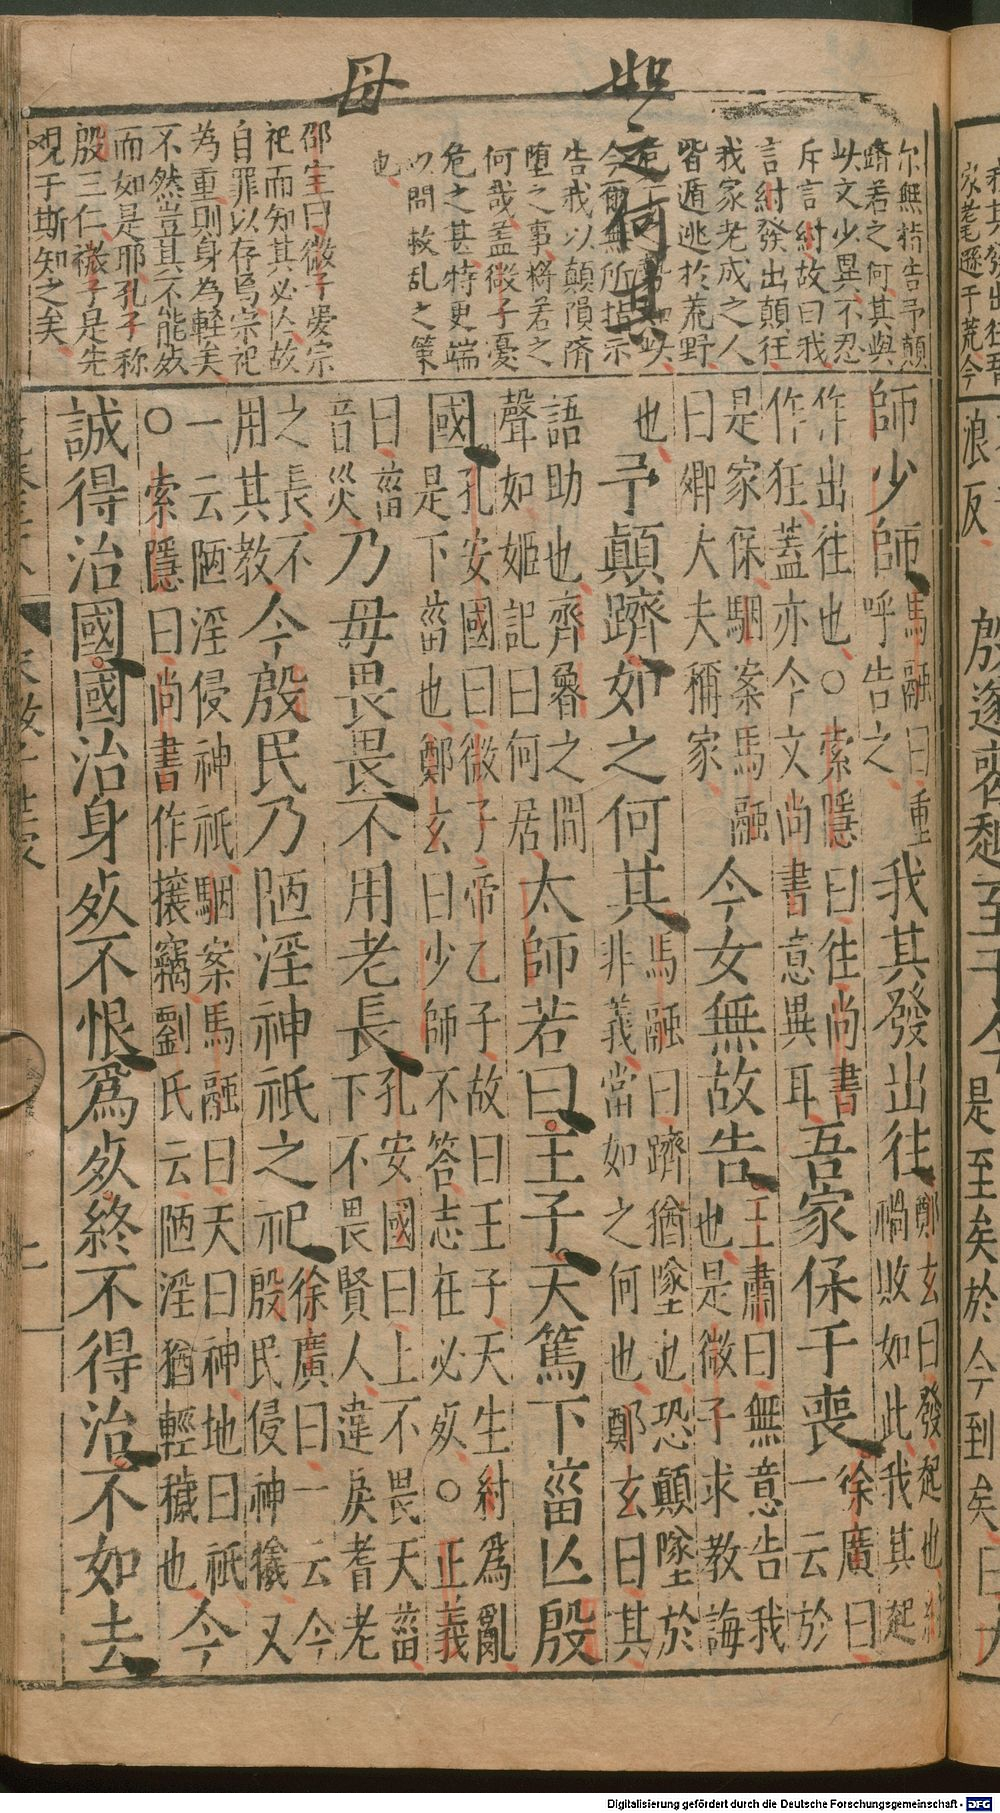 如之何其
母
尔無指告予顛
隮若之何其與
此文少異不忍
斥言紂故曰我
言紂發出顛狂
我家老成之人
皆遁逃於荒野
今爾無所指示
告我以顛隕隮
墮之事將若之
何哉蓋微子憂
危之甚特更端
以問救乱之策
也
邵宝曰微子愛宗
祀而知其必亾故
自罪以存焉宗祀
為重則身為軽矣
不然豈其不能死
而如是耶孔子称
殷三仁微子是先
观于斯知之矣
師少師馬融曰重呼告之我其發出往鄭玄曰發起也紂禍敗如此我其起
作出往也○索隱曰往尚書作狂蓋亦今文尚書意異耳吾家保于喪徐廣曰一云於
是家保駰案馬融曰卿大夫稱家今女無故告王肅曰無意告我也是微子求教誨
也予顛躋如之何其馬融曰躋猶墜也恐顛墜於非義當如之何也鄭玄曰其
語助也齊魯之間聲如姬記曰何居太師若曰王子天篤下菑亾殷
國孔安國曰微子帝乙子故曰王子天生紂爲亂是下菑也鄭玄曰少師不答志在必死○正義
曰菑音災乃毋畏畏不用老長孔安國曰上不畏天菑下不畏賢人違戾耆老
之長不用其教今殷民乃陋淫神祇之祀徐廣曰一云今殷民侵神犧又
一云陋淫侵神祇駰案馬融曰天曰神地曰祇○索隱曰尚書作攘竊劉氏云陋淫猶輕穢也今
誠得治國國治身死不恨爲死終不得治不如去
殷遂喪越至于今是至矣於今到矣
浪反
Digitalisierung gefördert durch die Deutsche Forschungsgemeinschaft - DFG